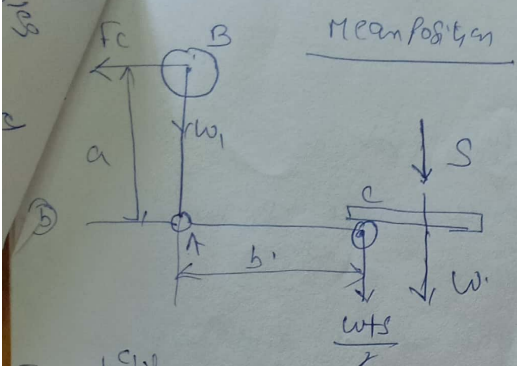 Mean Position
Fc
B
W1
a
S
C
A
b
W
W+S
2